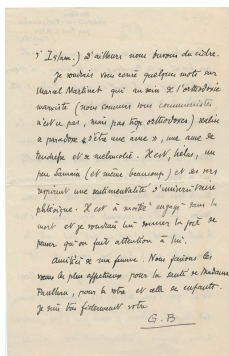 l'Islam.) D'ailleurs nous buvons du cidre.
Je voudrais vous écrire quelques mots sur
Marcel Martinet qui au sein de l'orthodoxie
marxiste (nous sommes tous communistes
n'est ce pas, mais pas trop orthodoxes) réalise
ce paradoxe "d'être une âme", une âme de
tendresse et de mélancolie. Il est, hélas, un
peu Samain (et même beaucoup) et ses vers
respirent une sentimentalité d'
phtisique. Il est à moitié engagé dans la
mort et je voudrais lui donner la joie de
penser qu'on fait attention à lui.
Amitiés de ma femme. Nous faisons les
vœux les plus affectueux pour la santé de Madame
Paulhan, pour la vôtre et celle des enfants.
Je suis bien fidèlement vôtre
G. B